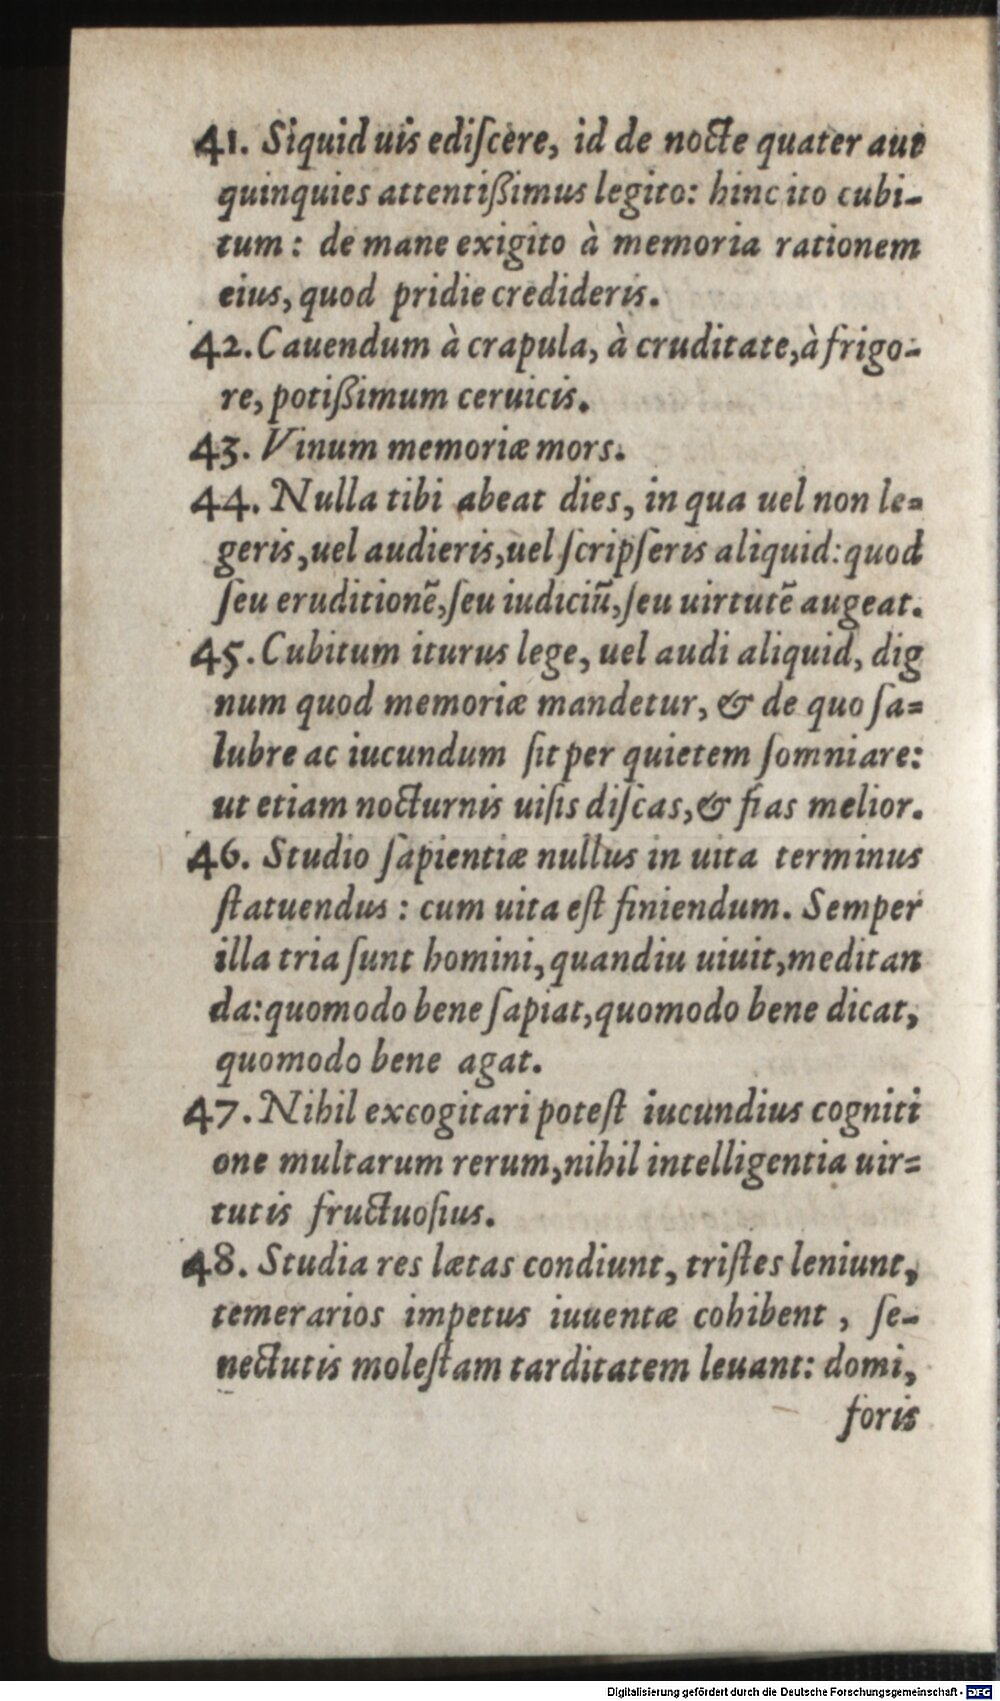 41. Siquid uis ediſcere, id de nocte quater aut
quinquies attentißimus legito: hinc ito cubi-
tum: de mane exigito à memoria rationem
eius, quod pridie credideris.
42. Cauendum à crapula, à cruditate, à frigo-
re, potißimum ceruicis.
43. Vinum memoriæ mors.
44. Nulla tibi abeat dies, in qua uel non le-
geris, uel audieris, uel ſcripſeris aliquid: quod
ſeu eruditionẽ, ſeu iudiciũ, ſeu uirtutẽ augeat.
45. Cubitum iturus lege, uel audi aliquid, dig
num quod memoriæ mandetur, & de quo ſa-
lubre ac iucundum ſit per quietem ſomniare:
ut etiam nocturnis uiſis diſcas, & fias melior.
46. Studio ſapientiæ nullus in uita terminus
ſtatuendus: cum uita eſt finiendum. Semper
illa tria ſunt homini, quandiu uiuit, meditan
da: quomodo bene ſapiat, quomodo bene dicat,
quomodo bene agat.
47. Nihil excogitari poteſt iucundius cogniti
one multarum rerum, nihil intelligentia uir-
tutis fructuoſius.
48. Studia res lætas condiunt, triſtes leniunt,
temerarios impetus iuuentæ cohibent, ſe-
nectutis moleſtam tarditatem leuant: domi,
foris
Digitalisierung gefördert durch die Deutsche Forschungsgemeinschaft - DFG